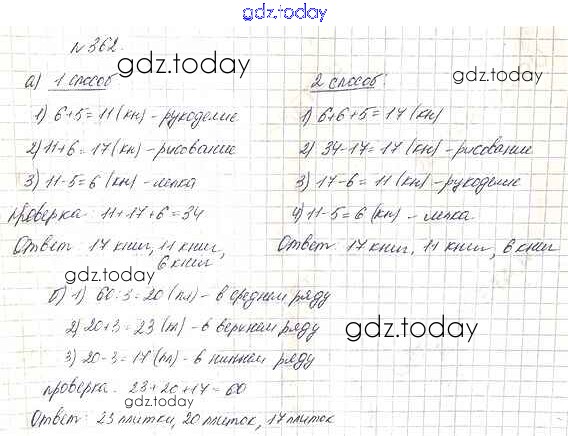 gdz.today
№362.
gdz.today
а) 1 способ
1) 6+5=11 (кн) - рукоделие
2) 11+6=17 (кн) - рисование
3) 11-5=6 (кн) - лепка
проверка: 11+17+6=34
Ответ: 17 книг, 11 книг,
6 книг
gdz.today
2 способ:
1) 6+6+5=17 (кн)
2) 34-17=17 (кн) - рисование
3) 17-6=11 (кн) - рукоделие
4) 11-5=6 (кн) - лепка.
Ответ: 17 книг, 11 книг, 6 книг
gdz.today
б) 1) 60:3=20 (пл) - в среднем ряду
2) 20+3=23 (пл) - в верхнем ряду
gdz.today
3) 20-3=17 (пл) - в нижнем ряду
проверка: 23+20+17=60
gdz.today
Ответ: 23 плитки, 20 плиток, 17 плиток